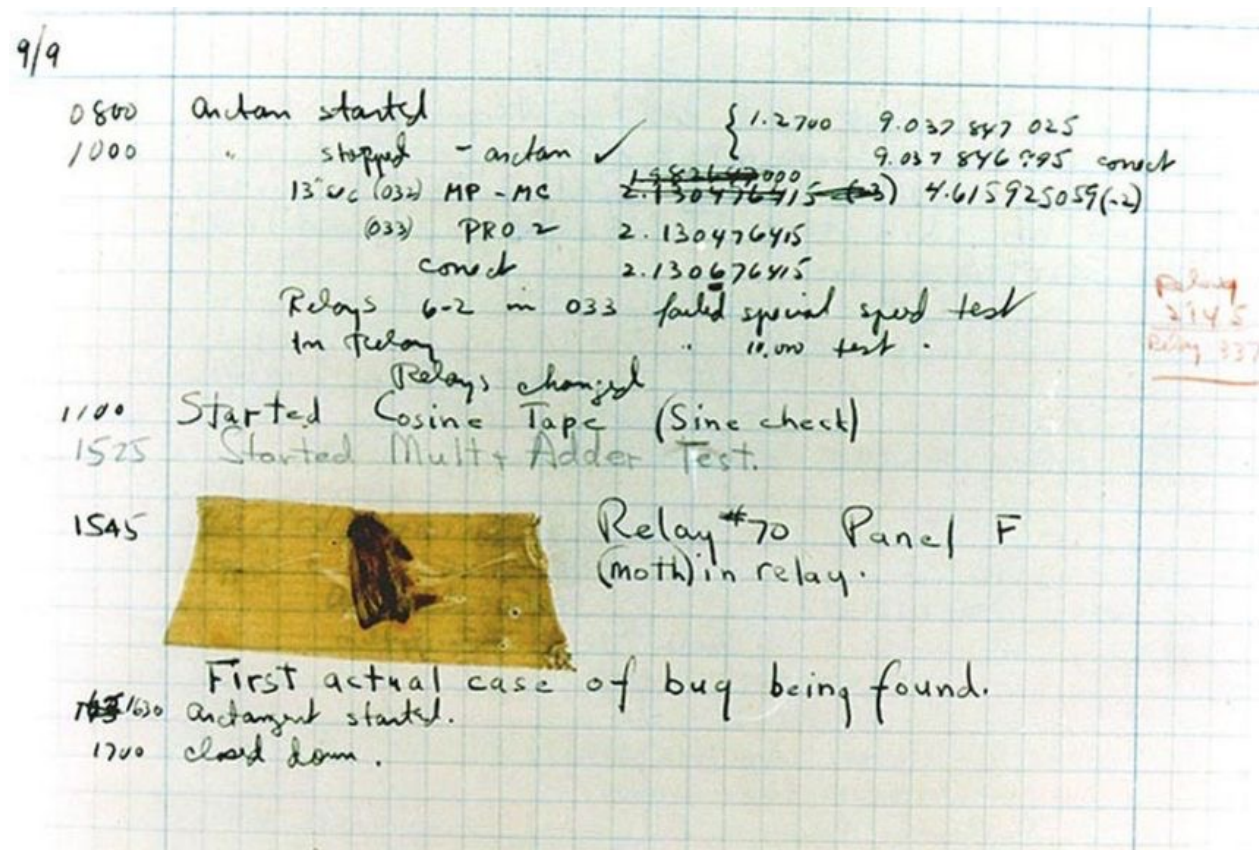 9/9
0800 arctan started { 1.2700 9.037 847 025
1000 " stopped - arctan ✓ 9.037 846 995 correct
13" uc (032) MP - MC 1.982647000 2.130476415 (-3) 4.615925059(-2)
(033) PRO 2 2.130476415
correct 2.130676415
Relays 6-2 in 033 failed special speed test
In Relay " 10,000 test .
Relay
2145
Relay 337
Relays changed
1100 Started Cosine Tape (Sine check)
1525 Started Mult+ Adder Test.
1545 Relay #70 Panel F
(moth) in relay.
First actual case of bug being found.
1630 arctangent started.
1700 closed down .